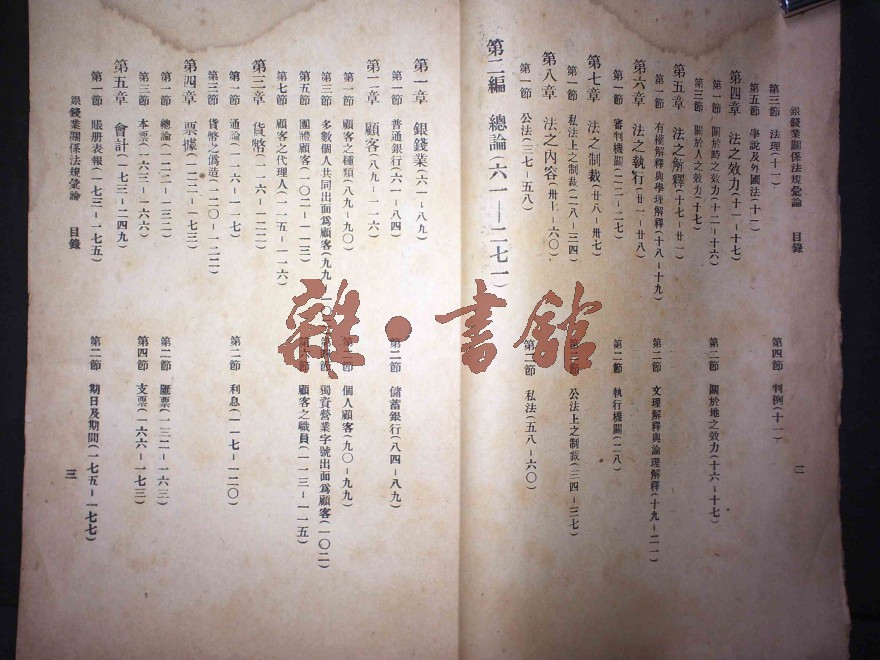 銀錢業關係法規彙論 目錄 二
第三節 法理(十一) 第四節 判例(十一)
第五節 學說及外國法(十一)
第四章 法之效力(十一-十七)
第一節 關於時之效力(十二-十六) 第二節 關於地之效力(十六-十七)
第三節 關於人之效力(十七)
第五章 法之解釋(十七-廿一)
第一節 有權解釋與學理解釋(十八-十九) 第二節 文理解釋與論理解釋(十九-二一)
第六章 法之執行(廿一-廿八)
第一節 審判機關(二二-二七) 第二節 執行機關(二八)
第七章 法之制裁(廿八-卅七)
第一節 私法上之制裁(二八-三四) 第二節 公法上之制裁(三四-三七)
第八章 法之內容(卅七-六〇)
第一節 公法(三七-五八) 第二節 私法(五八-六〇)
第二編 總論(六一—二七一)
第一章 銀錢業(六一-八九)
第一節 普通銀行(六一-八四) 第二節 儲蓄銀行(八四-八九)
第二章 顧客(八九-一一六)
第一節 顧客之種類(八九-九〇) 第二節 個人顧客(九〇-九九)
第三節 多數個人共同出面爲顧客(九九-一〇二) 第四節 獨資營業字號出面爲顧客(一〇二)
第五節 團體顧客(一〇二-一一三) 第六節 顧客之職員(一一三-一一五)
第七節 顧客之代理人(一一五-一一六)
第三章 貨幣(一一六-一二二)
第一節 通論(一一六-一一七) 第二節 利息(一一七-一二〇)
第三節 貨幣之僞造(一二〇-一二二)
第四章 票據(一二二-一七三)
第一節 總論(一二二-一三二) 第二節 匯票(一三二-一六三)
第三節 本票(一六三-一六六) 第四節 支票(一六六-一七三)
第五章 會計(一七三-二四九)
第一節 賬册表報(一七三-一七五) 第二節 期日及期間(一七五-一七七)
銀錢業關係法規彙論 目錄 三
雜·書館